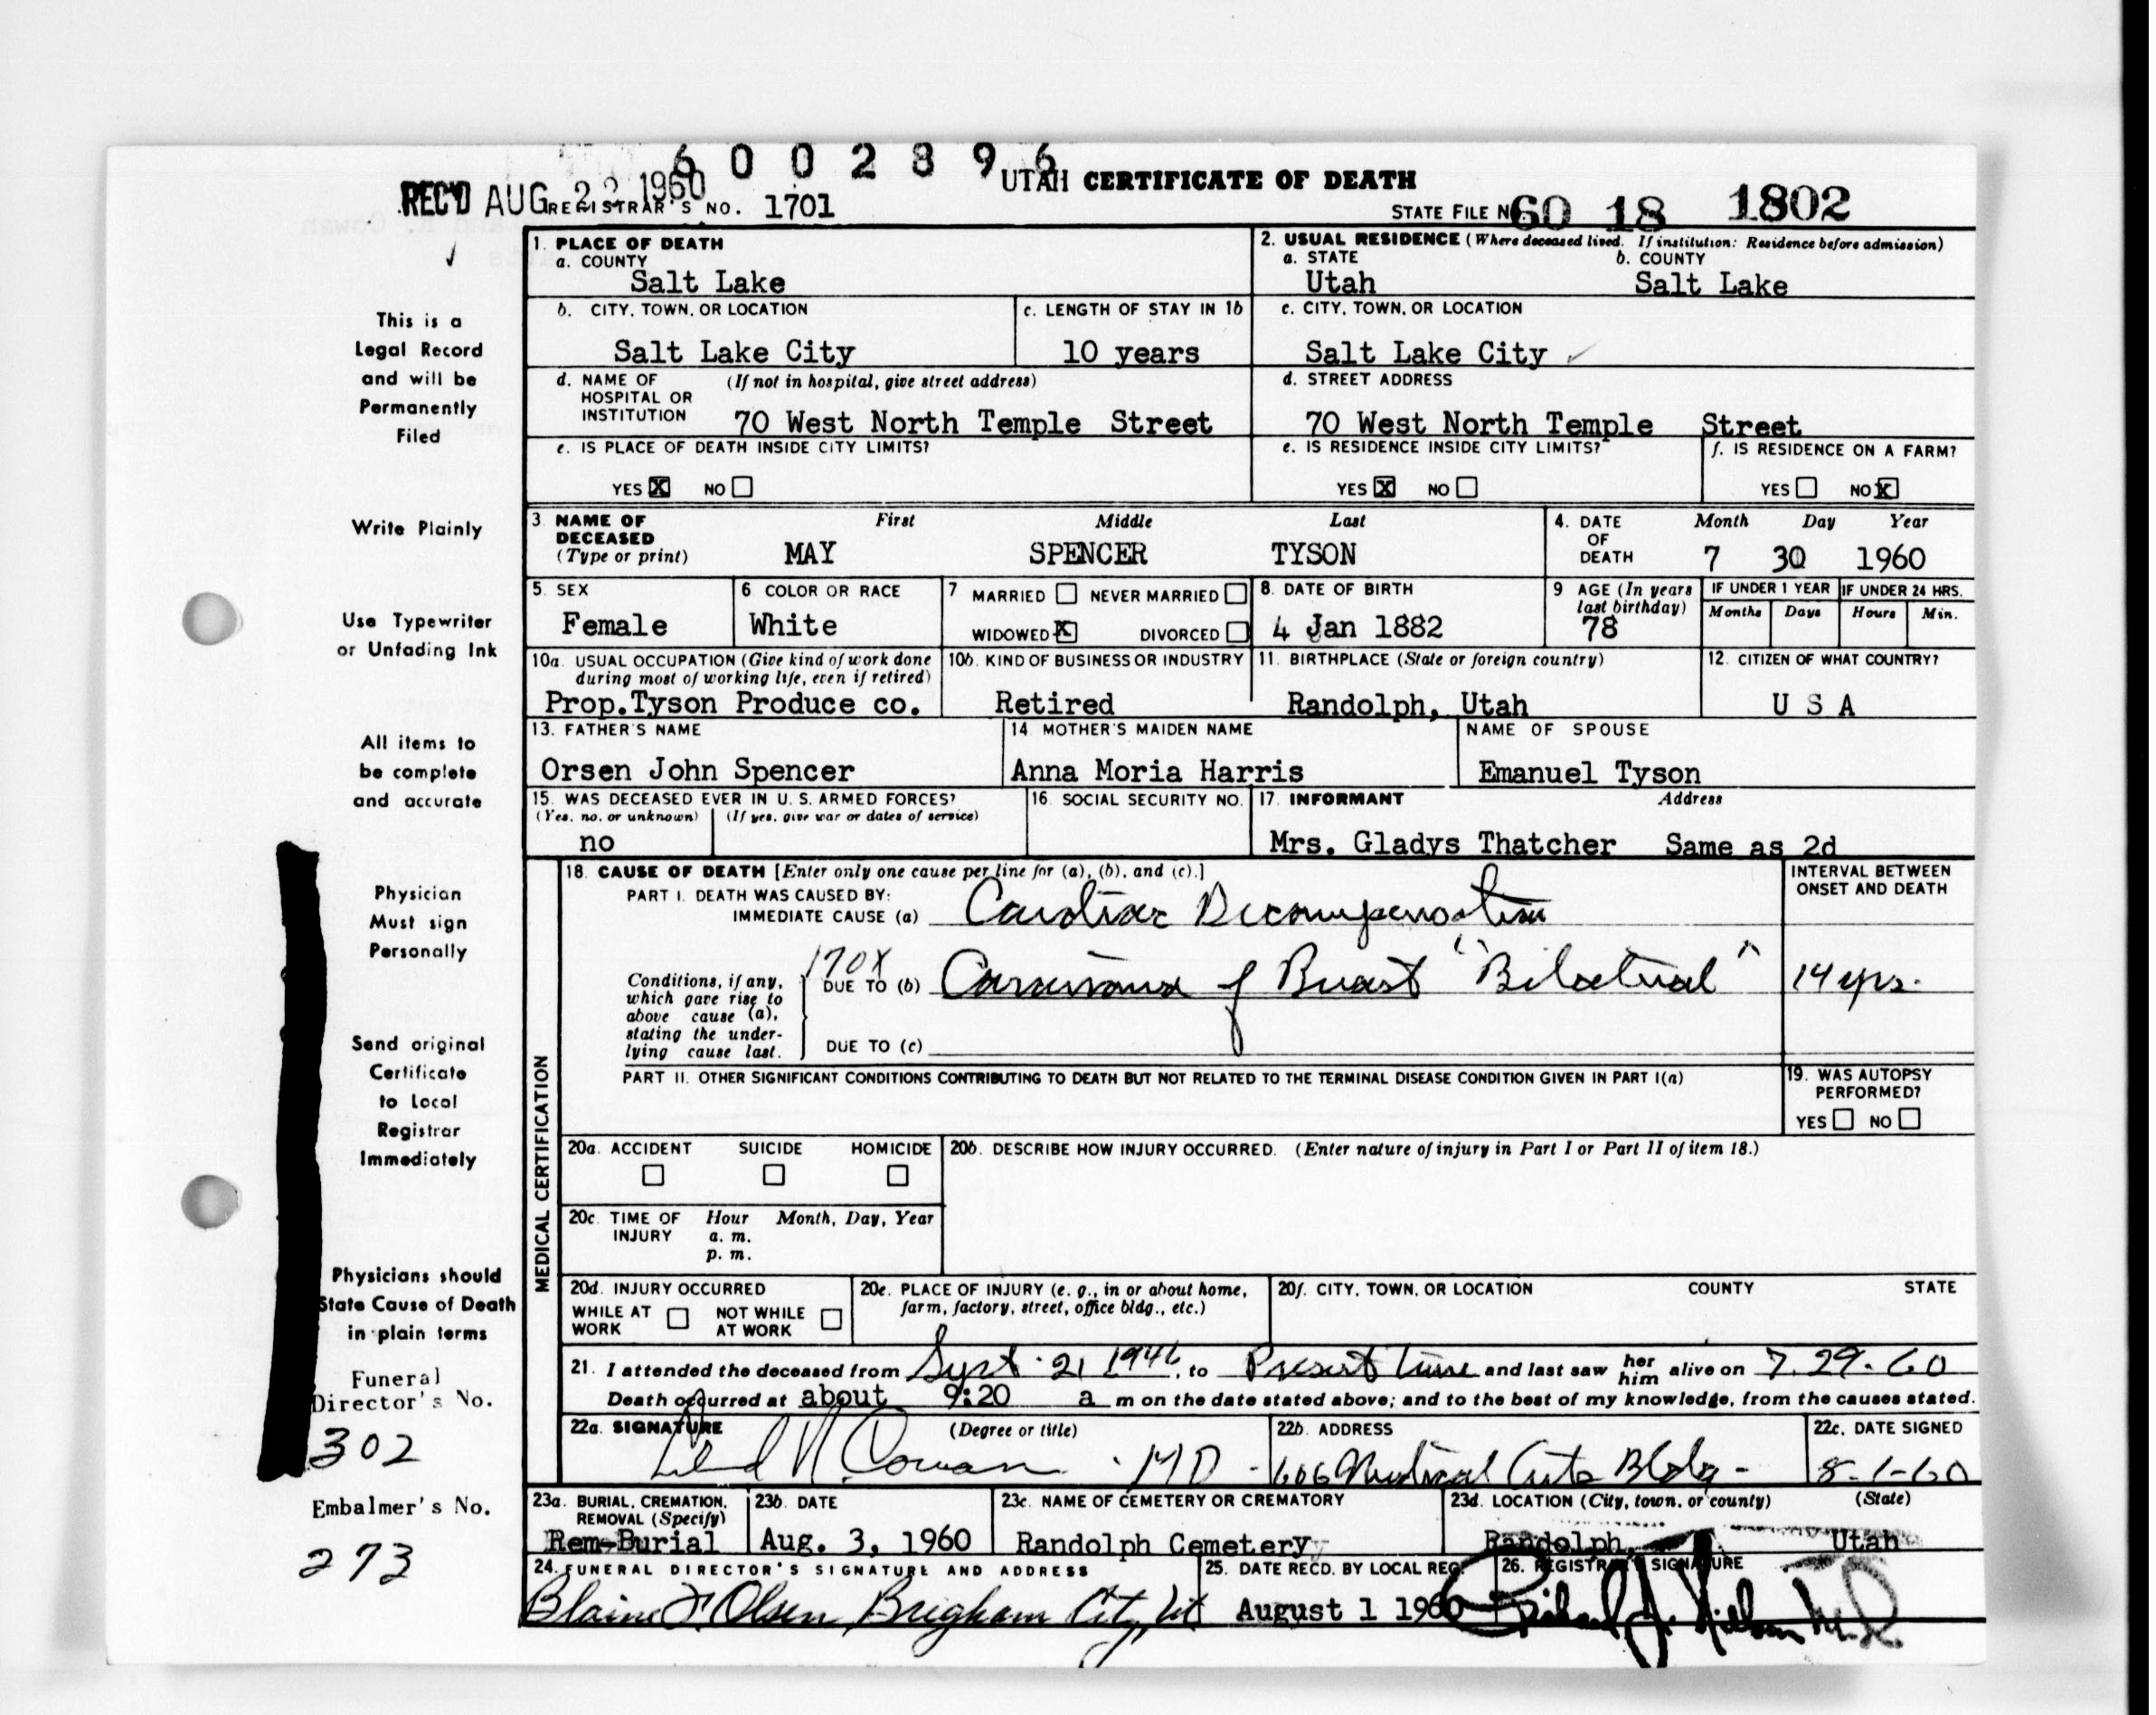 6002896
REC'D AUG 22 1960 UTAH CERTIFICATE OF DEATH
REGISTRAR'S NO. 1701 STATE FILE NO. 60 18 1802
1. PLACE OF DEATH
a. COUNTY
Salt Lake
2. USUAL RESIDENCE (Where deceased lived. If institution: Residence before admission)
a. STATE b. COUNTY
Utah Salt Lake
b. CITY, TOWN, OR LOCATION c. LENGTH OF STAY IN 1b c. CITY, TOWN, OR LOCATION
Salt Lake City 10 years Salt Lake City
d. NAME OF (If not in hospital, give street address) d. STREET ADDRESS
HOSPITAL OR
INSTITUTION 70 West North Temple Street 70 West North Temple Street
e. IS PLACE OF DEATH INSIDE CITY LIMITS? e. IS RESIDENCE INSIDE CITY LIMITS? f. IS RESIDENCE ON A FARM?
YES X NO YES X NO YES NO X
3 NAME OF DECEASED First Middle Last 4. DATE OF DEATH Month Day Year
(Type or print) MAY SPENCER TYSON 7 30 1960
5. SEX 6 COLOR OR RACE 7 MARRIED NEVER MARRIED 8. DATE OF BIRTH 9 AGE (In years last birthday) IF UNDER 1 YEAR IF UNDER 24 HRS.
Months Days Hours Min.
Female White WIDOWED X DIVORCED 4 Jan 1882 78
10a. USUAL OCCUPATION (Give kind of work done 10b. KIND OF BUSINESS OR INDUSTRY 11. BIRTHPLACE (State or foreign country) 12. CITIZEN OF WHAT COUNTRY?
during most of working life, even if retired)
Prop.Tyson Produce co. Retired Randolph, Utah U S A
13. FATHER'S NAME 14. MOTHER'S MAIDEN NAME NAME OF SPOUSE
Orsen John Spencer Anna Moria Harris Emanuel Tyson
15. WAS DECEASED EVER IN U. S. ARMED FORCES? 16. SOCIAL SECURITY NO. 17. INFORMANT Address
(Yes, no, or unknown) (If yes, give war or dates of service)
no Mrs. Gladys Thatcher Same as 2d
MEDICAL CERTIFICATION
18. CAUSE OF DEATH [Enter only one cause per line for (a), (b), and (c).] INTERVAL BETWEEN
ONSET AND DEATH
PART I. DEATH WAS CAUSED BY:
IMMEDIATE CAUSE (a) Cardiac Decompensation
170X
Conditions, if any,
which gave rise to
above cause (a),
stating the under-
lying cause last.
DUE TO (b) Carcinoma of Breast "Bilateral" 14 yrs.
DUE TO (c)
PART II. OTHER SIGNIFICANT CONDITIONS CONTRIBUTING TO DEATH BUT NOT RELATED TO THE TERMINAL DISEASE CONDITION GIVEN IN PART I(a)
19. WAS AUTOPSY
PERFORMED?
YES NO
20a. ACCIDENT SUICIDE HOMICIDE 20b. DESCRIBE HOW INJURY OCCURRED. (Enter nature of injury in Part I or Part II of item 18.)
20c. TIME OF Hour Month, Day, Year
INJURY a. m.
p. m.
20d. INJURY OCCURRED 20e. PLACE OF INJURY (e. g., in or about home, 20f. CITY, TOWN, OR LOCATION COUNTY STATE
farm, factory, street, office bldg., etc.)
WHILE AT WORK NOT WHILE AT WORK
21. I attended the deceased from Sept. 21 1946, to Present time and last saw her him alive on 7.29.60
Death occurred at about 9:20 a m on the date stated above; and to the best of my knowledge, from the causes stated.
22a. SIGNATURE (Degree or title) 22b. ADDRESS 22c. DATE SIGNED
Leland R. Cowan MD 606 Medical Arts Bldg 8-1-60
23a. BURIAL, CREMATION, 23b. DATE 23c. NAME OF CEMETERY OR CREMATORY 23d. LOCATION (City, town, or county) (State)
REMOVAL (Specify)
Rem-Burial Aug. 3, 1960 Randolph Cemetery Randolph, Utah
24. FUNERAL DIRECTOR'S SIGNATURE AND ADDRESS 25. DATE RECD. BY LOCAL REG. 26. REGISTRAR'S SIGNATURE
Blaine F Olsen Brigham City, Ut August 1 1960
This is a
Legal Record
and will be
Permanently
Filed
Write Plainly
Use Typewriter
or Unfading Ink
All items to
be complete
and accurate
Physician
Must sign
Personally
Send original
Certificate
to Local
Registrar
Immediately
Physicians should
State Cause of Death
in plain terms
Funeral
Director's No.
302
Embalmer's No.
273